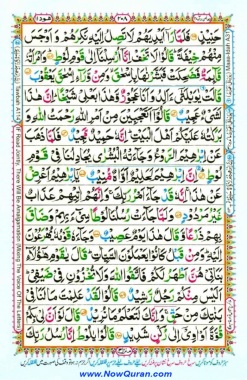 هود ١١
٢٠٨
حَنِیْذٍ فَلَمَّا رَاٰۤ اَیْدِیَهُمْ لَا تَصِلُ اِلَیْهِ نَكِرَهُمْ وَ اَوْجَسَ
مِنْهُمْ خِیْفَةًؕ قَالُوْا لَا تَخَفْ اِنَّاۤ اُرْسِلْنَاۤ اِلٰى قَوْمِ لُوْطٍؕ وَ امْرَاَتُهٗ
قَآىٕمَةٌ فَضَحِكَتْ فَبَشَّرْنٰهَا بِاِسْحٰقَۙ وَ مِنْ وَّرَآءِ اِسْحٰقَ یَعْقُوْبَ
قَالَتْ یٰوَیْلَتٰۤى ءَاَلِدُ وَ اَنَا عَجُوْزٌ وَّ هٰذَا بَعْلِیْ شَیْخًاؕ اِنَّ هٰذَا
لَشَیْءٌ عَجِیْبٌ قَالُوْۤا اَتَعْجَبِیْنَ مِنْ اَمْرِ اللّٰهِ رَحْمَتُ اللّٰهِ وَ
بَرَكٰتُهٗ عَلَیْكُمْ اَهْلَ الْبَیْتِؕ اِنَّهٗ حَمِیْدٌ مَّجِیْدٌ فَلَمَّا ذَهَبَ
عَنْ اِبْرٰهِیْمَ الرَّوْعُ وَ جَآءَتْهُ الْبُشْرٰى یُجَادِلُنَا فِیْ قَوْمِ
لُوْطٍؕ اِنَّ اِبْرٰهِیْمَ لَحَلِیْمٌ اَوَّاهٌ مُّنِیْبٌ یٰۤاِبْرٰهِیْمُ اَعْرِضْ
عَنْ هٰذَاۚ اِنَّهٗ قَدْ جَآءَ اَمْرُ رَبِّكَۚ وَ اِنَّهُمْ اٰتِیْهِمْ عَذَابٌ
غَیْرُ مَرْدُوْدٍ وَ لَمَّا جَآءَتْ رُسُلُنَا لُوْطًا سِیْٓءَ بِهِمْ وَ ضَاقَ
بِهِمْ ذَرْعًا وَّ قَالَ هٰذَا یَوْمٌ عَصِیْبٌ وَ جَآءَهٗ قَوْمُهٗ یُهْرَعُوْنَ
اِلَیْهِؕ وَ مِنْ قَبْلُ كَانُوْا یَعْمَلُوْنَ السَّیِّاٰتِؕ قَالَ یٰقَوْمِ هٰۤؤُلَآءِ
بَنَاتِیْ هُنَّ اَطْهَرُ لَكُمْ فَاتَّقُوا اللّٰهَ وَ لَا تُخْزُوْنِ فِیْ ضَیْفِیْؕ
اَلَیْسَ مِنْكُمْ رَجُلٌ رَّشِیْدٌ قَالُوْا لَقَدْ عَلِمْتَ مَا لَنَا فِیْ
بَنٰتِكَ مِنْ حَقٍّۚ وَ اِنَّكَ لَتَعْلَمُ مَا نُرِیْدُ قَالَ لَوْ اَنَّ لِیْ بِكُمْ
قُوَّةً اَوْ اٰوِیْۤ اِلٰى رُكْنٍ شَدِیْدٍ قَالُوْا یٰلُوْطُ اِنَّا رُسُلُ رَبِّكَ
www.NowQuran.com